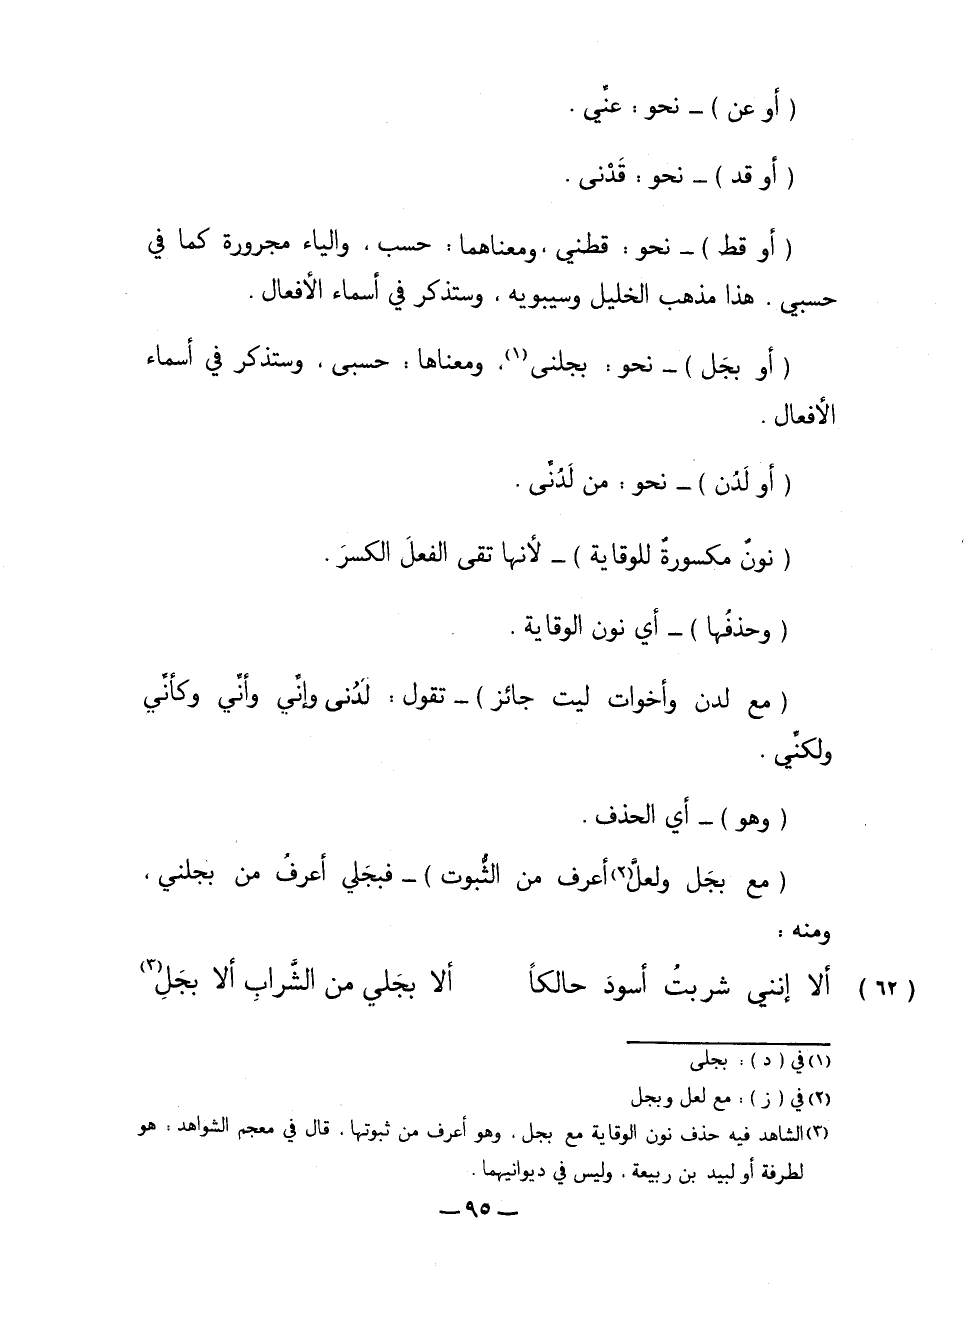 ( أو عن ) ــ نحو : عنِّي .
( أو قد ) ــ نحو : قَدْنى .
( أو قط ) ــ نحو : قطني ، ومعناهما : حسب ، والياء مجرورة كما في
حسبي . هذا مذهب الخليل وسيبويه ، وستذكر في أسماء الأفعال .
( أو بجَل ) ــ نحو : بجلنى(١)، ومعناها : حسبى ، وستذكر في أسماء
الأفعال .
( أو لَدُن ) ــ نحو : من لَدُنِّى .
( نونٌ مكسورةٌ للوقاية ) ــ لأنها تقى الفعلَ الكسرَ .
( وحذفُها ) ــ أي نون الوقاية .
( مع لدن وأخوات ليت جائز ) ــ تقول : لَدُنى وإنِّي وأنِّي وكأنِّي
ولكنِّي .
( وهو ) ــ أي الحذف .
( مع بجَل ولعلَّ(٢) أعرف من الثُّبوت ) ــ فبجَلي أعرفُ من بجلني ،
ومنه :
( ٦٢ ) ألا إنني شربتُ أسودَ حالكاً ألا بجَلي من الشَّرابِ ألا بجَلِ(٣)
(١) في ( د ) : بجلى
(٢) في ( ز ) : مع لعل وبجل
(٣) الشاهد فيه حذف نون الوقاية مع بجل ، وهو أعرف من ثبوتها . قال في معجم الشواهد : هو
لطرفة أو لبيد بن ربيعة ، وليس في ديوانيهما .
ــ ٩٥ ــ